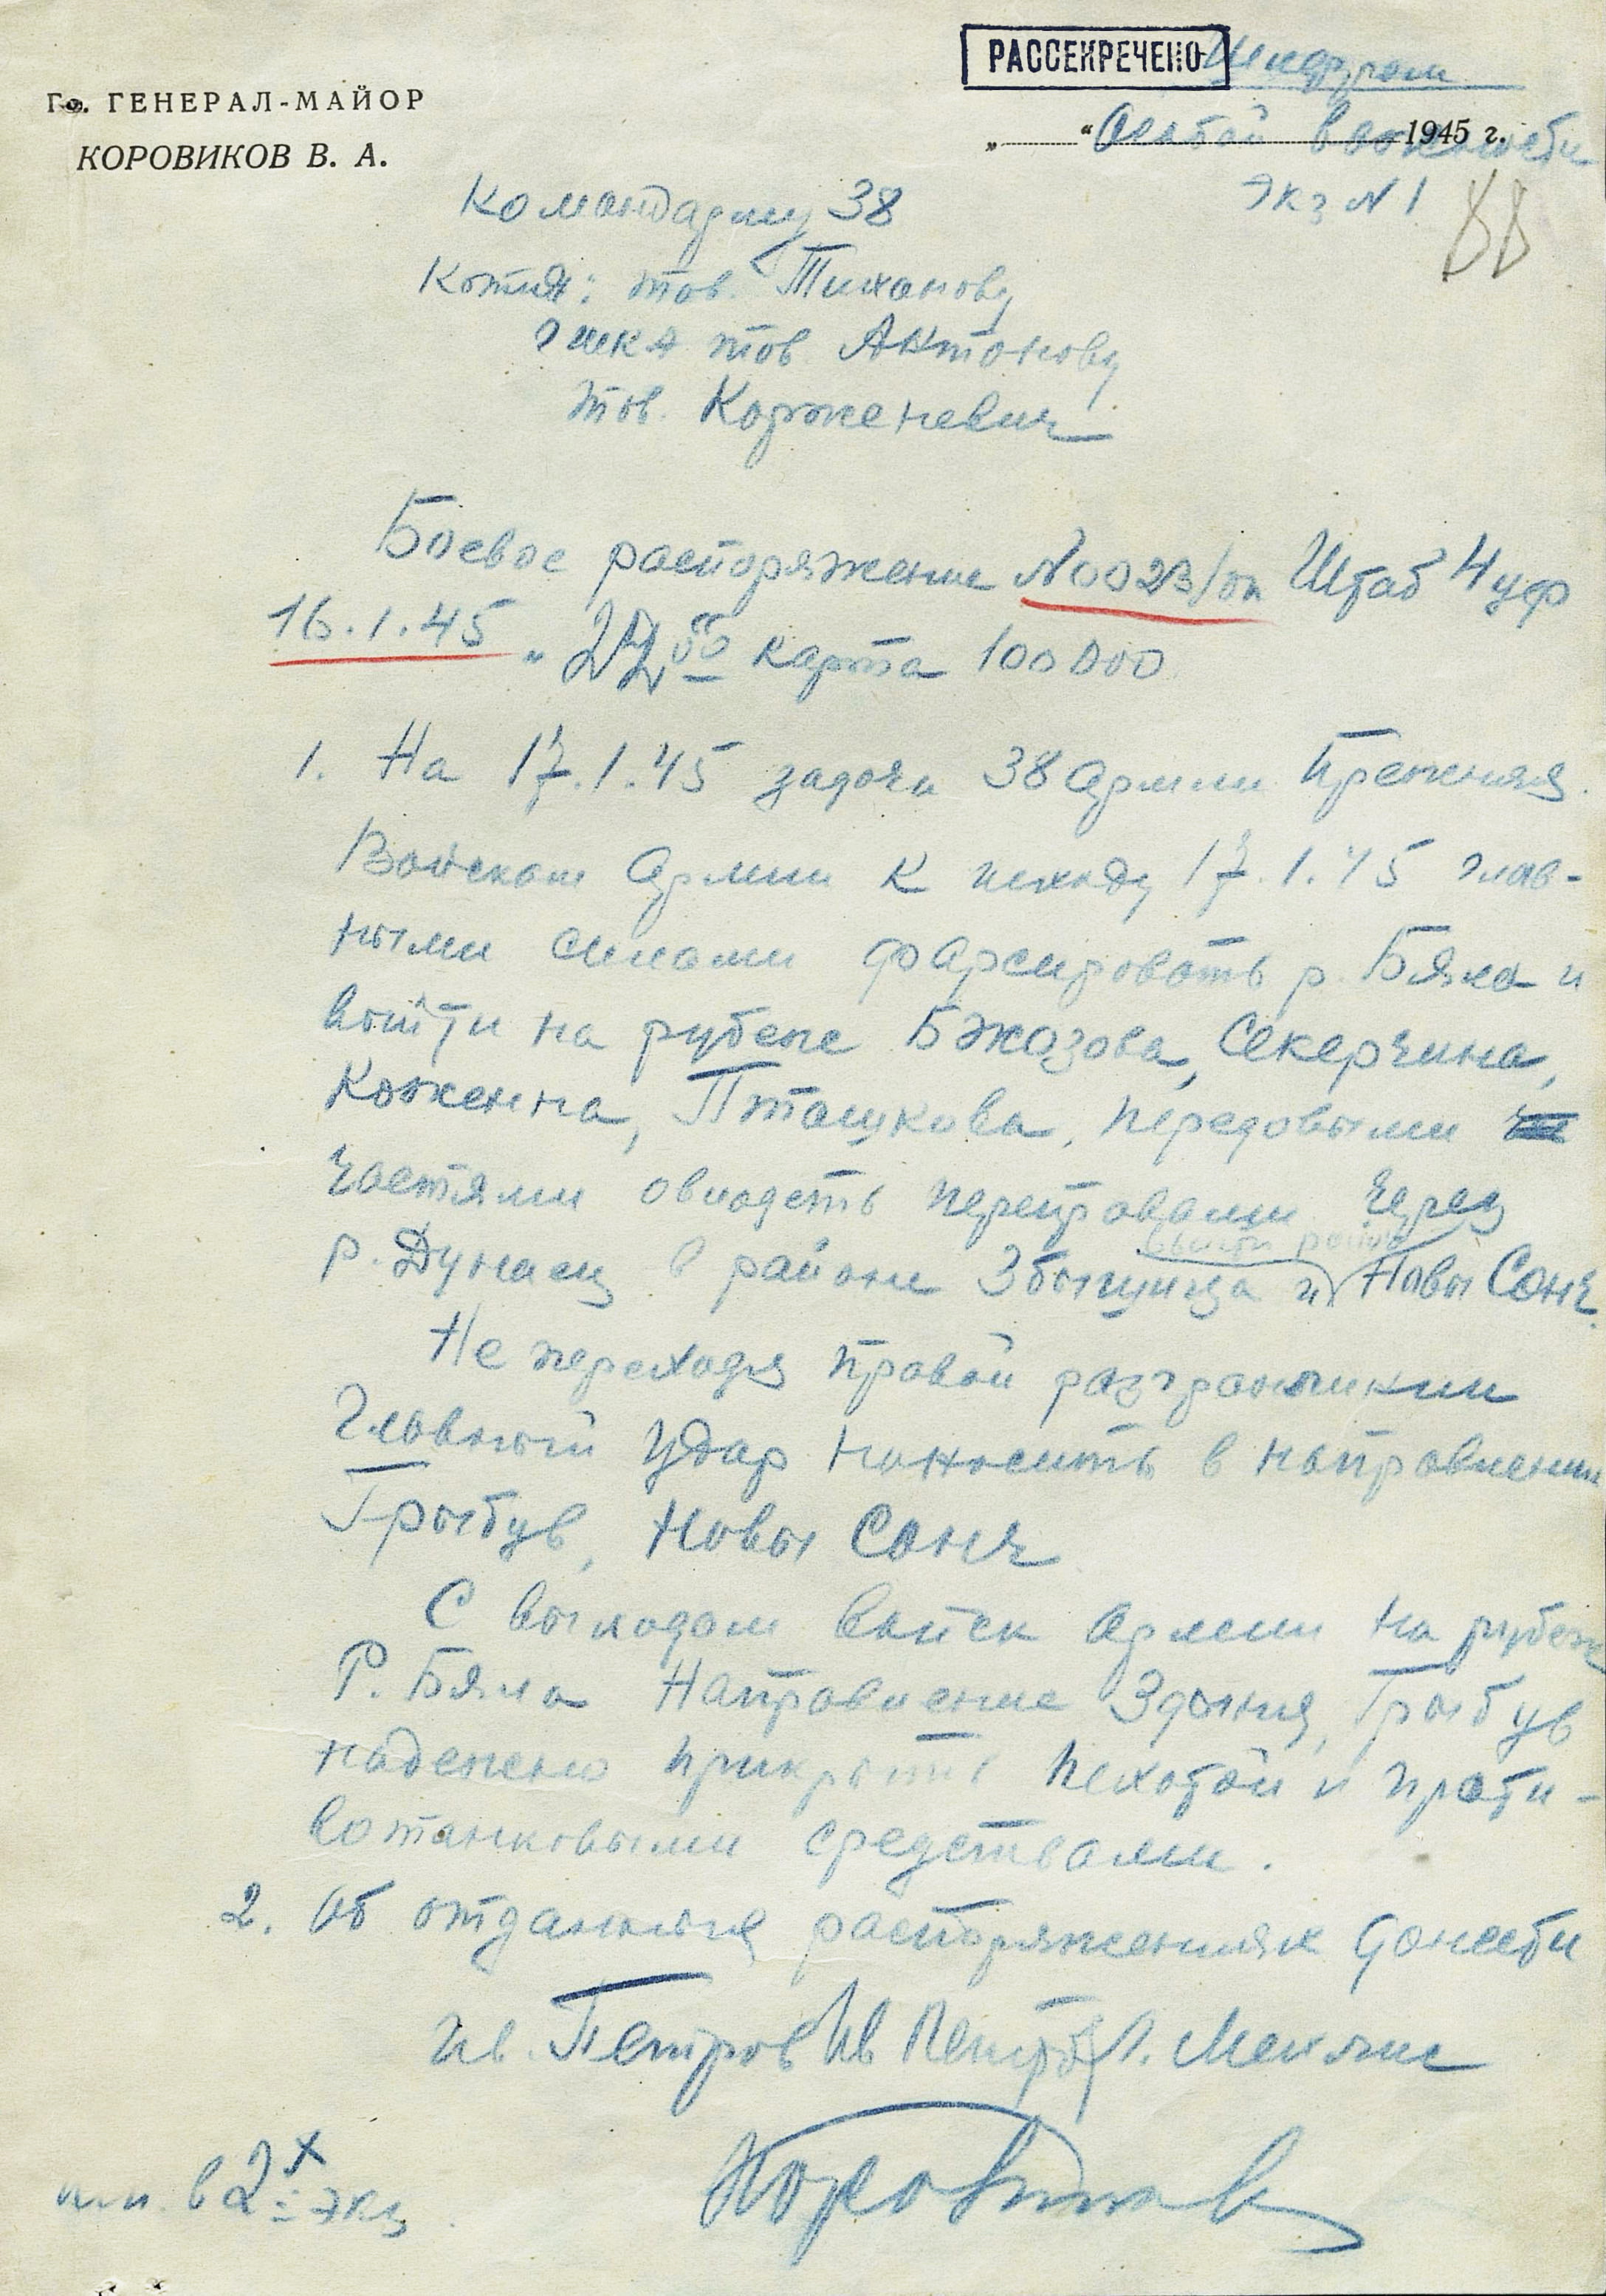 РАССЕКРЕЧЕНО
Шифром
Гв. ГЕНЕРАЛ-МАЙОР
КОРОВИКОВ В. А.
„ “ 1945 г.
Особой важности
экз N 1
88
Командарму 38
Копия: тов. Тихонову
тов Антонову
тов. Корженевич
Боевое распоряжение N 0023/оп Штаб 4 уф
16.1.45 00 карта 100 000
1. На 17.1.45 задача 38 армии прежняя.
Войскам армии к исходу 17.1.45 глав-
ными силами форсировать р. Бяла и
выйти на рубеже Бжозова, Секерчина,
Коженна, Пташкова, передовыми
частями овладеть переправами через
р. Дунаец в районе Збышица и Новы Сонч.
Не переходя правой разгранлинии
главный удар наносить в направлении
Грыбув, Новы Сонч
С выходом войск армии на рубеж
р. Бяла направление Здыня, Грыбув
надежно прикрыть пехотой и проти-
вотанковыми средствами.
2. Об отданных распоряжениях донести
Ив. Петров Ив Петров Л. Мехлис
Коровиков
в 2х экз